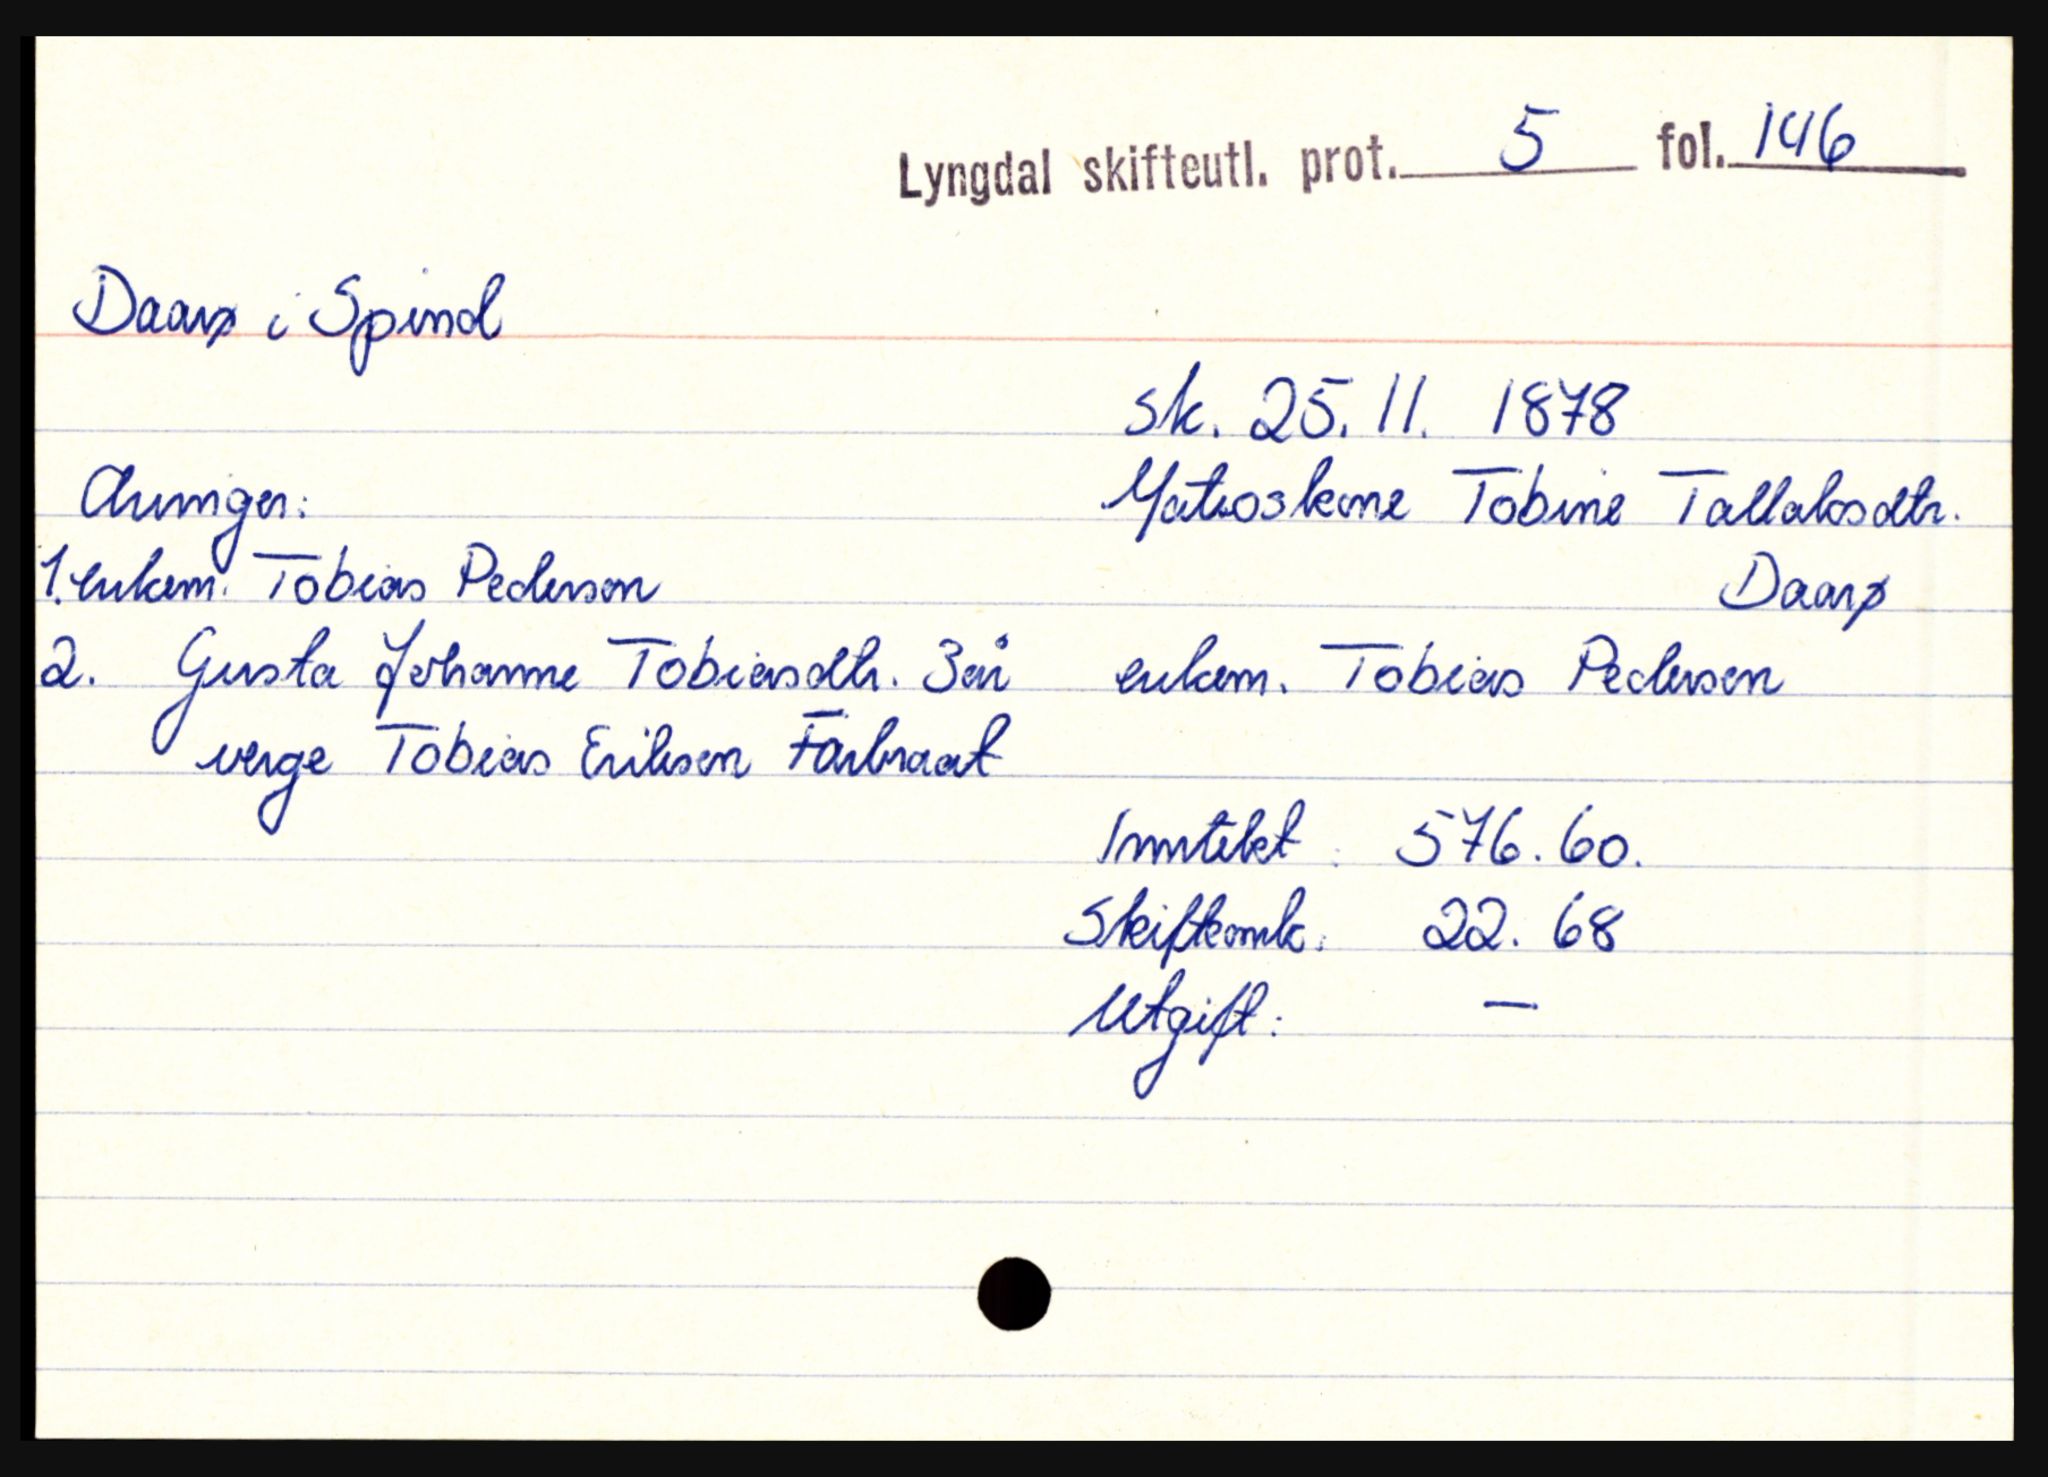 Lyngdal skifteutl. prot. 5 fol. 146
Daarø i Spind
sk. 25. 11. 1878
Matroskone Tobine Tallaksdtr.
Daarø
enkem. Tobias Pedersen
Arvinger:
1. enkem. Tobias Pedersen
2. Gusta Johanne Tobiasdtr. 3 år
verge Tobias Eriksen Farbraat
Inntekt: 576.60.
Skiftkomk: 22.68
Utgift: —